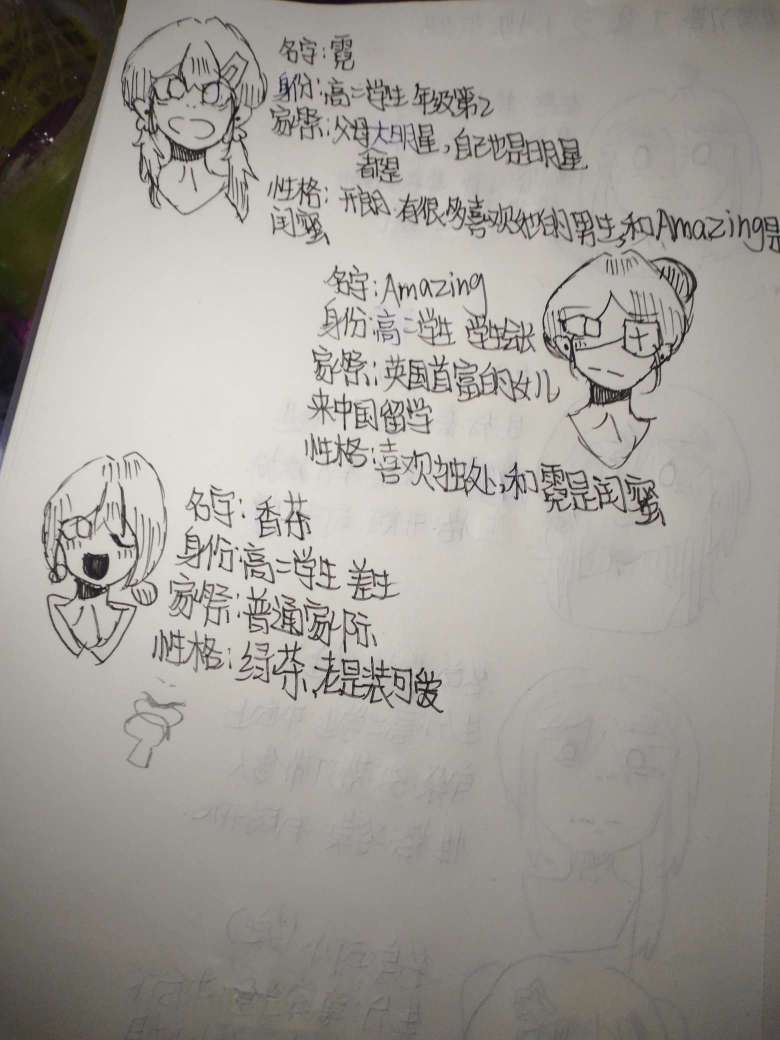 名字:霓
身份:高二学生 年级第2
家祭:父母大明星,自己也是明星
都是
性格:开朗.有很多喜欢她的男生,和Amazing是
闺蜜
名字:Amazing
身份:高二学生 学生会长
家祭:英国首富的女儿
来中国留学
性格:喜欢独处,和霓是闺蜜
名字:香茶
身份:高二学生 差生
家祭:普通家际
性格:绿茶,老是装可爱